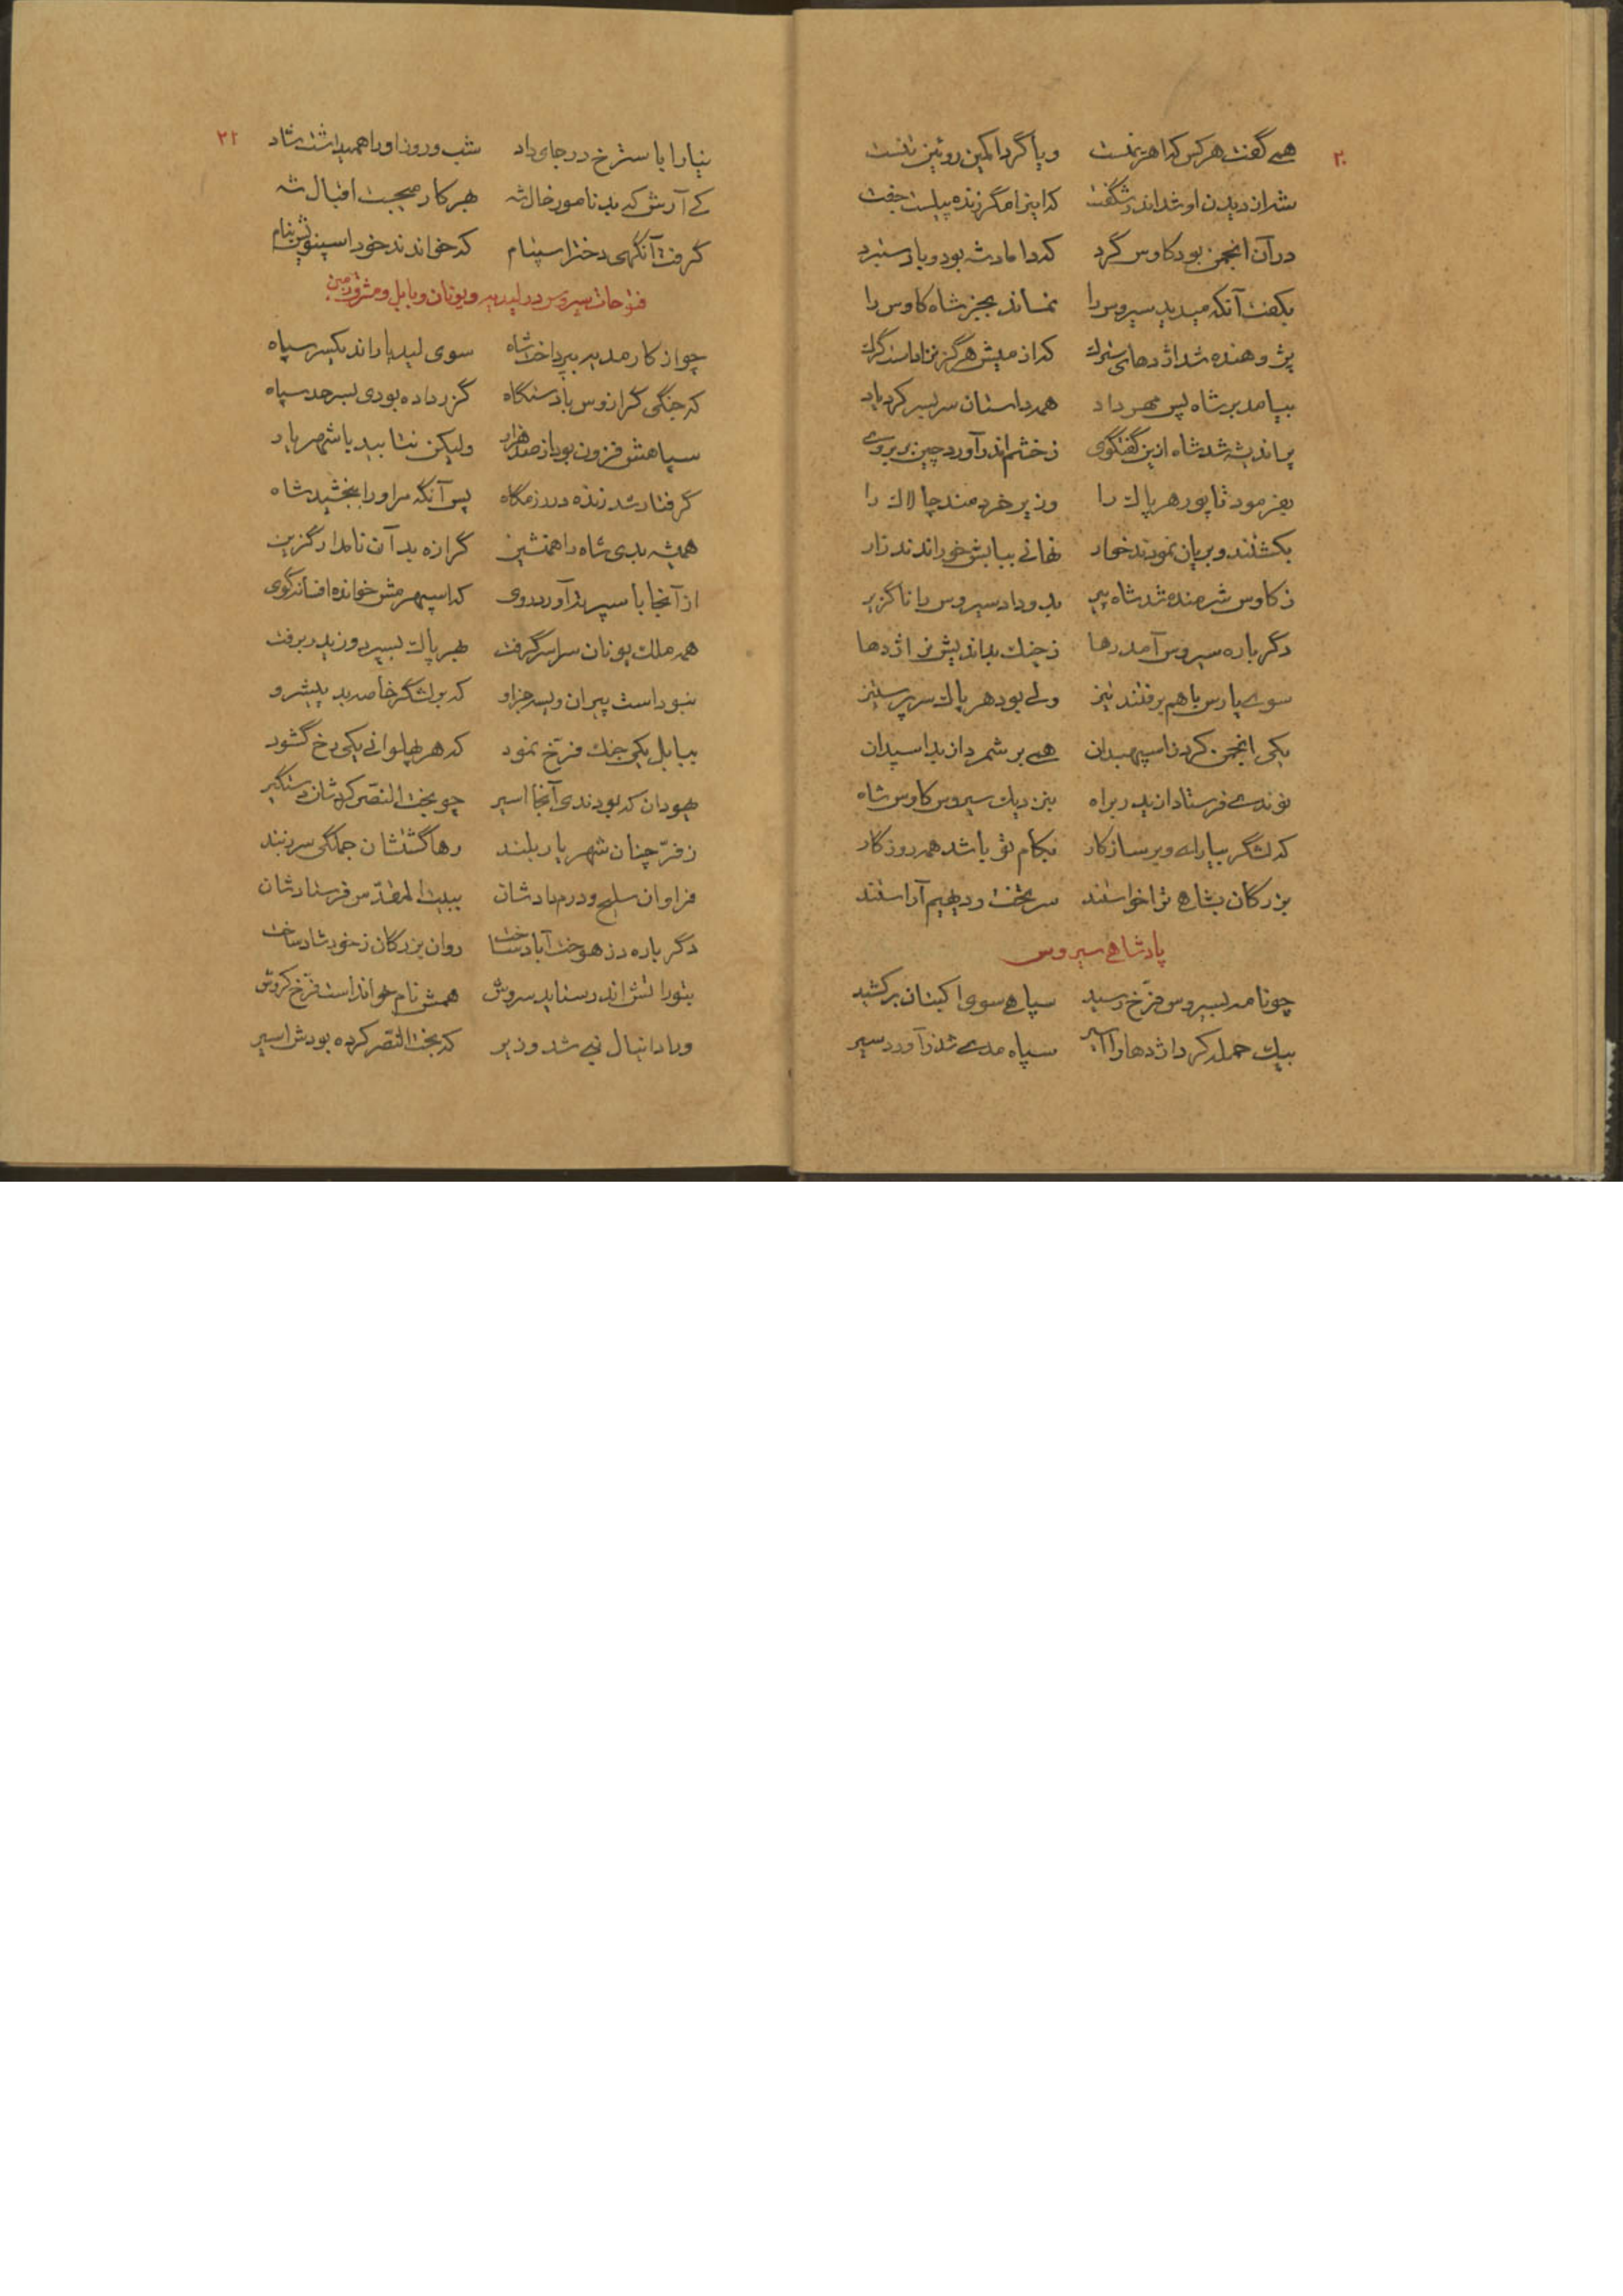 ۲۰
همی گفت هرکس که اهریمنست ویا گرد اکمین روئین تنست
شد از دیدن او شه اندر شگفت که اینرا مگر زنده پیلست جفت
در آن انجمن بود کاوس گرد که داماد شه بود و با دستبرد
بگفت آنکه میدید سیروس را نماند بجز شاه کاوس را
پژوهنده شد اژدهای سترك که از میش هرگز نزاد است گرك
بیامد بر شاه پس مهرداد همه داستان سر بسر کرد یاد
پر اندیشه شد شاه ازین گفتگوی ز خشم اندر آورد چین بر بروی
بفرمود تا پور هرپاك را وزیر خردمند چالاك را
بکشتند و بریان نمودند خوار نهانی ببابش خوراندند زار
ز کاوس شرمنده شد شاه پیر بدو داد سیروس را ناگزیر
دگر باره سیروس آمد رها ز چنك بداندیش نر اژدها
سوی پارس با هم برفتند نیز ولی بود هرپاك سر پر ستیز
یکی انجمن کرد ز اسپهبدان همی بر شمرد از بد اسپدان
نوندی فرستاد از بد براه بنزدیك سیروس کاوس شاه
که لشگر بیارای و برساز کار بکام تو باشد همه روزگار
بزرگان بشاهی ترا خواستند سر تخت و دیهیم آراستند
پادشاهی سیروس
چو نامه بسیروس فرخ رسید سپاهی سوی اکبتان برکشید
بیك حمله کرد اژدها را اسیر سپاه مدی شد ز آورد سیر
۲۱
نیا را بااسترخ در جای داد شب و روز او را همیداشت شاد
کی آرش که بد نامور خال شه بهر کار میجست اقبال شه
گرفت آنگهی دختر اسپنام که خواندند خود اسپنویش بنام
فتوحات سیروس در لیدیه و یونان و بابل و مشرق زمین
چو از کار مدیه بپرداخت شاه سوی لیدیا راند یکسر سپاه
که جنگی گرازوس با دستگاه گزر داده بودی بسرحد سپاه
سپاهش فزون بود از صد هزار ولیکن نتابید با شهریار
گرفتار شد زنده در رزمگاه پس آنگه مر او را ببخشید شاه
همیشه بدی شاه را همنشین گرازه بد آن نامدار گزین
از آنجا با سپرتد آورد روی که اسپهرمش خوانده افسانه گوی
همه ملك یونان سراسر گرفت بهرپاك بسپرد وزید ر برفت
نبود است پیران ویسه جز او که بر لشگر خاصه بد پیشرو
ببابل یکی جنك فرخ نمود که هر پهلوانی یکی رخ گشود
یهودان که بودندی آنجا اسیر چو بخت النصر کردشان دستگیر
ز فر چنان شهریار بلند رها گشتشان جملگی سر ز بند
فراوان سلیح و درم دادشان ببیت المقدس فرستادشان
دگر باره دز هوخت آباد ساخت روان بزرگان ز خود شاد ساخت
بتوراتش اندر ستاید سروش همش نام خوانداست فرخ کروش
ورا دانیال نبی شد وزیر که بخت النصر کرده بودش اسیر